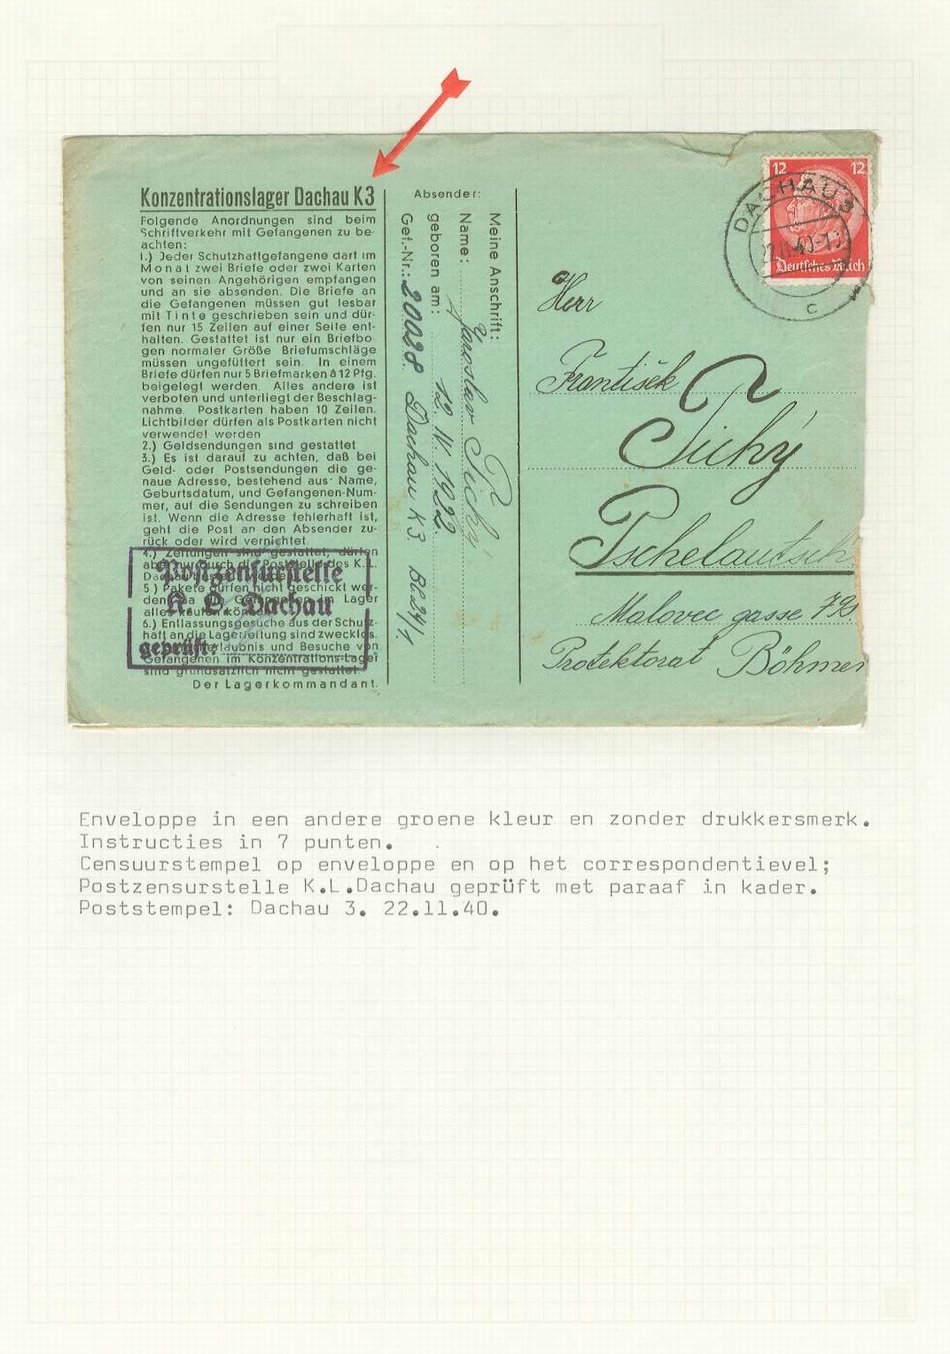 Konzentrationslager Dachau K3
Folgende Anordnungen sind beim
Schriftverkehr mit Gefangenen zu be-
achten:
1.) Jeder Schutzhaftgefangene darf im
Monat zwei Briefe oder zwei Karten
von seinen Angehörigen empfangen
und an sie absenden. Die Briefe an
die Gefangenen müssen gut lesbar
mit Tinte geschrieben sein und dür-
fen nur 15 Zeilen auf einer Seite ent-
halten. Gestattet ist nur ein Briefbo-
gen normaler Größe Briefumschläge
müssen ungefüttert sein. In einem
Briefe dürfen nur 5 Briefmarken à 12 Pfg.
beigelegt werden. Alles andere ist
verboten und unterliegt der Beschlag-
nahme. Postkarten haben 10 Zeilen.
Lichtbilder dürfen als Postkarten nicht
verwendet werden
2.) Geldsendungen sind gestattet
3.) Es ist darauf zu achten, daß bei
Geld- oder Postsendungen die ge-
naue Adresse, bestehend aus: Name,
Geburtsdatum, und Gefangenen-Num-
mer, auf die Sendungen zu schreiben
ist. Wenn die Adresse fehlerhaft ist,
geht die Post an den Absender zu-
rück oder wird vernichtet.
4.) Zeitungen sind gestattet, dürfen
aber nur durch die Poststelle des K.L.
Dachau
5) Pakete dürfen nicht geschickt wer-
den, da die Gefangenen im Lager
alles kaufen können
6.) Entlassungsgesuche aus der Schutz-
haft an die Lagerleitung sind zwecklos.
erlaubnis und Besuche von
Gefangenen im Konzentrations-Lager
sind grundsätzlich nicht gestattet.
Der Lagerkommandant.
Postzensurstelle
K. L. Dachau
geprüft:
Absender:
Meine Anschrift:
Name: Jaroslav Tichý
geboren am: 12. IV. 1922.
Gef.-Nr.: 20028. Dachau K3. Bl.24/1
12 12
Deutsches Reich
DACHAU 3
22.11.40
c
Herr
František
Tichý
Pschelautsch
Malovec gasse 79
Protektorat Böhmen
Enveloppe in een andere groene kleur en zonder drukkersmerk.
Instructies in 7 punten.
Censuurstempel op enveloppe en op het correspondentievel;
Postzensurstelle K.L.Dachau geprüft met paraaf in kader.
Poststempel: Dachau 3. 22.11.40.